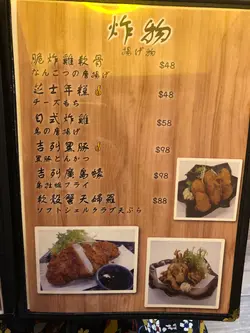 炸物
揚げ物
脆炸雞軟骨 $48
なんこつの唐揚げ
芝士年糕 $48
チーズもち
日式炸雞 $58
鳥の唐揚げ
吉列黑豚 $98
黒豚とんかつ
吉列廣島蠔 $98
フライ
軟殼蟹天婦羅 $88
ソフトシェルクラブ天ぷら